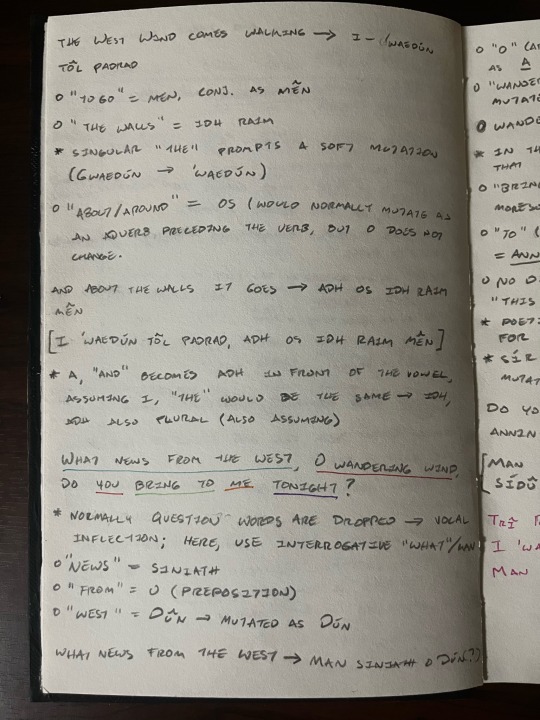 THE WEST WIND COMES WALKING → I – 'WAEDÚN
TÔL PADRAD
o "TO GO" = MEN, CONJ. AS MÊN
o "THE WALLS" = IDH RAIM
* SINGULAR "THE" PROMPTS A SOFT MUTATION
(GWAEDÚN → 'WAEDÚN)
o "ABOUT/AROUND" = OS (WOULD NORMALLY MUTATE AS
AN ADVERB PRECEDING THE VERB, BUT O DOES NOT
CHANGE.
AND ABOUT THE WALLS IT GOES → ADH OS IDH RAIM
MÊN
[I 'WAEDÚN TÔL PADRAD, ADH OS IDH RAIM MÊN]
* A, "AND" BECOMES ADH IN FRONT OF THE VOWEL,
ASSUMING I, "THE" WOULD BE THE SAME → IDH,
ADH ALSO PLURAL (ALSO ASSUMING)
WHAT NEWS FROM THE WEST, O WANDERING WIND,
DO YOU BRING TO ME TONIGHT?
* NORMALLY QUESTION WORDS ARE DROPPED → VOCAL
INFLECTION; HERE, USE INTERROGATIVE "WHAT"/MAN
o "NEWS" = SINIATH
o "FROM" = O (PREPOSITION)
o "WEST" = DÛN → MUTATED AS DÚN
WHAT NEWS FROM THE WEST → MAN SINIATH O DÚN?
o "O"
AS A
MUTATE
o
* IN THE
THAT
o
o "TO"
= ANN
o NO
"THIS
*
FOR
* SÍR
DO YO
ANNIN
[MAN
SÍDÛ
TRÎ
I 'WA
MAN